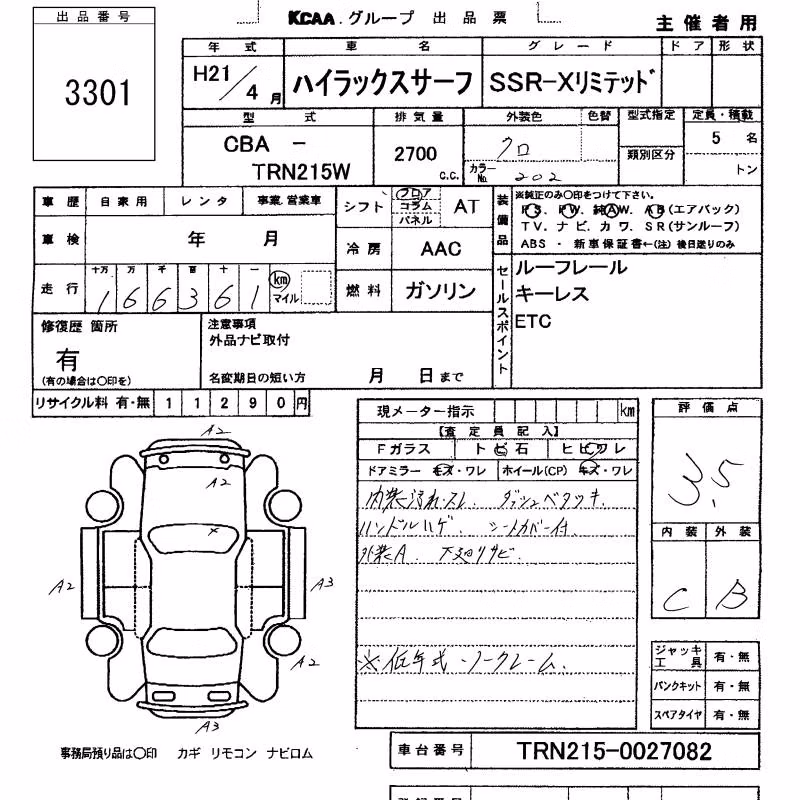 KCAA.グループ 出品票
主催者用
出品番号
3301
年式 車名 グレード ドア 形状
H21/4月 ハイラックスサーフ SSR-Xリミテッド
型式 排気量 外装色 色替 型式指定 定員・積載
CBA - TRN215W 2700 c.c. クロ カラーNo. 202 類別区分 5名 トン
車歴 自家用 レンタ 事業.営業車
車検 年 月
走行 十万 万 千 百 十 一
166361 km マイル
シフト フロア コラム パネル AT
冷房 AAC
燃料 ガソリン
装備品
※純正のみ○印をつけて下さい。
PS、PW、純AW、AB(エアバック)
TV、ナビ、カワ、SR(サンルーフ)
ABS・新車保証書←(注)後日送りのみ
セールスポイント
ルーフレール
キーレス
ETC
修復歴 箇所
有
(有の場合は○印を)
注意事項
外品ナビ取付
名変期日の短い方 月 日まで
リサイクル料 有・無 11290円
現メーター指示 km
【査定員記入】
Fガラス トビ石 ヒビワレ
ドアミラー キズ・ワレ ホイール(CP) キズ・ワレ
内装汚れスレ. ダッシュベタツキ.
ハンドルハゲ. シートカバー付.
外装A. 下廻りサビ.
※低年式・ノークレーム.
評価点
3.5
内装 外装
C B
ジャッキ工具 有・無
パンクキット 有・無
スペアタイヤ 有・無
A2
A2
×
A2
A3
A2
A3
事務局預り品は○印 カギ リモコン ナビロム
車台番号 TRN215-0027082